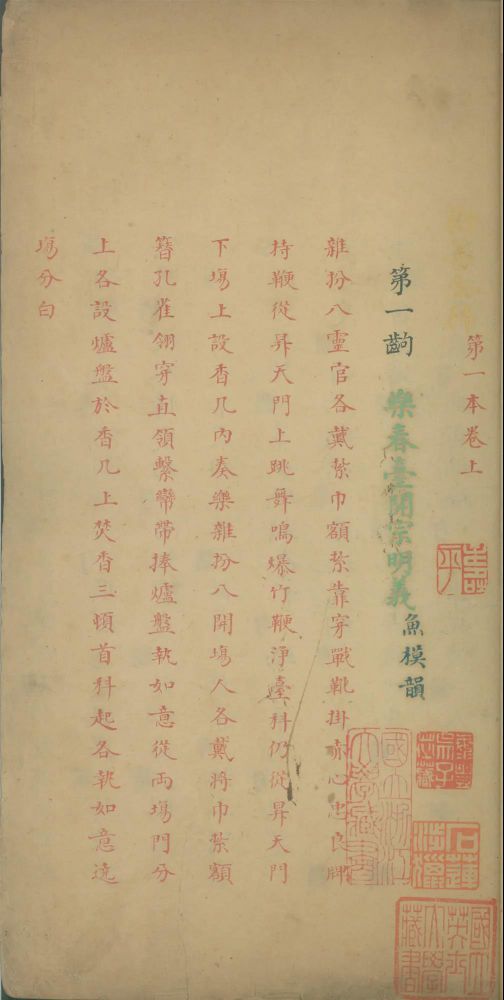 第一本卷上
第一齣 樂春臺開宗明義 魚模韻
雜扮八靈官各戴紥巾額紥靠穿戰靴掛赤心忠良牌
持鞭從昇天門上跳舞鳴爆竹鞭淨臺科仍從昇天門
下場上設香几內奏樂雜扮八開場人各戴將巾紥額
簪孔雀翎穿直領繫鸞帶捧爐盤執如意從兩場門分
上各設爐盤於香几上焚香三頓首科起各執如意遶
場分白
國立浙江大學藏書
石蓮
國立
英士
大學
藏書